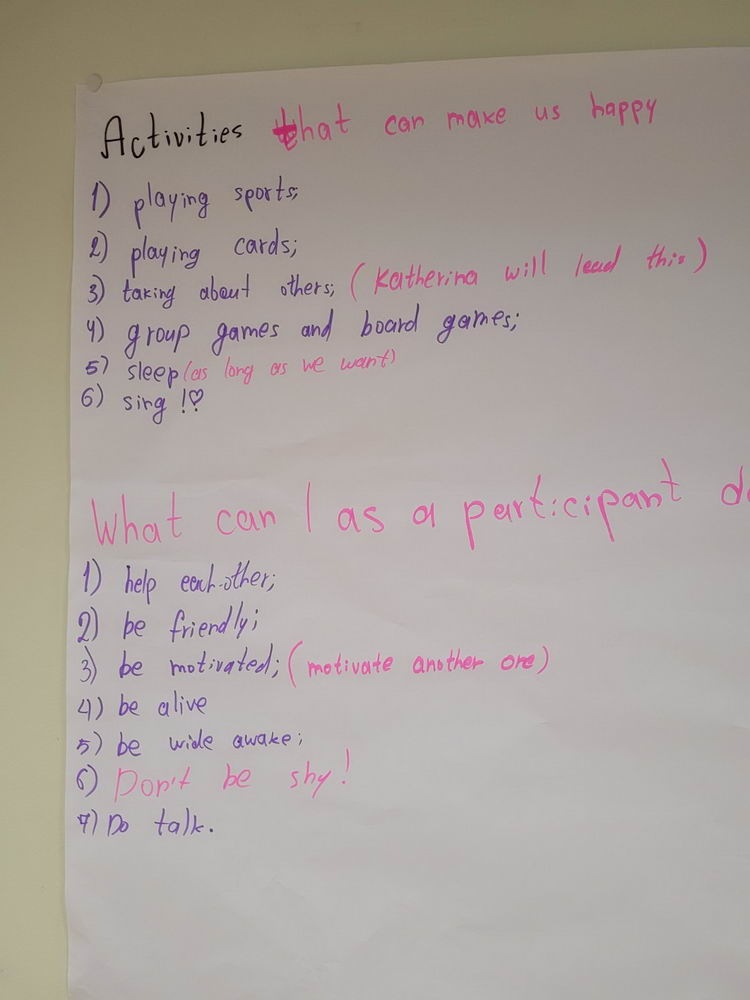 Activities that can make us happy
1) playing sports;
2) playing cards;
3) taking about others; (Katherina will lead this)
4) group games and board games;
5) sleep (as long as we want)
6) sing !♡
What can I as a participant do
1) help each-other;
2) be friendly;
3) be motivated; (motivate another one)
4) be alive
5) be wide awake;
6) Don't be shy!
7) Do talk.